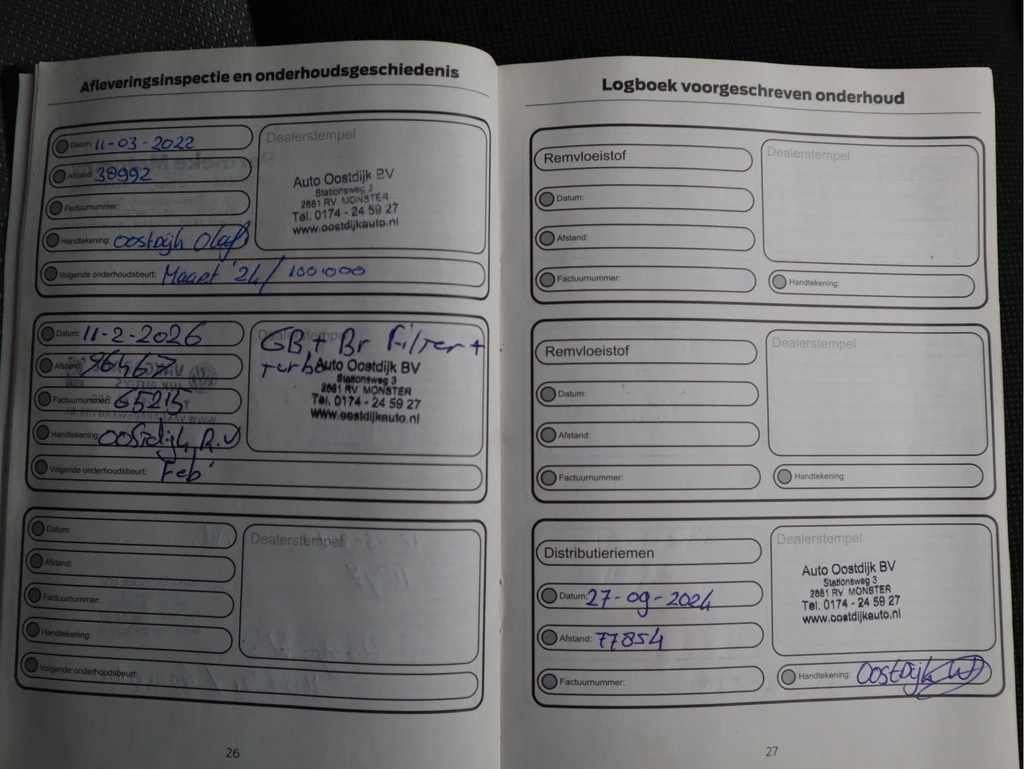 Afleveringsinspectie en onderhoudsgeschiedenis
Datum: 11-03-2022
Afstand: 38992
Factuurnummer:
Handtekening: Oostdijk Olaf
Volgende onderhoudsbeurt: Maart '24/100.000
Dealerstempel
Auto Oostdijk BV
Stationsweg 3
2681 RV MONSTER
Tel. 0174 - 24 59 27
www.oostdijkauto.nl
Datum: 11-2-2026
Afstand: 96467
Factuurnummer: 65215
Handtekening: Oostdijk R.V
Volgende onderhoudsbeurt: Feb'
Dealerstempel
GB + Br Filter +
Turbo
Auto Oostdijk BV
Stationsweg 3
2681 RV MONSTER
Tel. 0174 - 24 59 27
www.oostdijkauto.nl
Datum:
Afstand:
Factuurnummer:
Handtekening:
Volgende onderhoudsbeurt:
Dealerstempel
26
Logboek voorgeschreven onderhoud
Remvloeistof
Datum:
Afstand:
Factuurnummer:
Dealerstempel
Handtekening:
Remvloeistof
Datum:
Afstand:
Factuurnummer:
Dealerstempel
Handtekening:
Distributieriemen
Datum: 27-09-2024
Afstand: 77854
Factuurnummer:
Dealerstempel
Auto Oostdijk BV
Stationsweg 3
2681 RV MONSTER
Tel. 0174 - 24 59 27
www.oostdijkauto.nl
Handtekening: Oostdijk
27